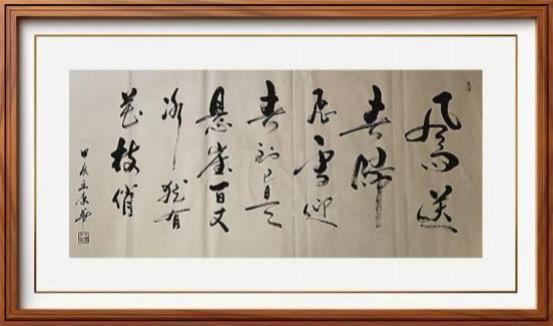 風雨送
春歸
飛雪迎
春到已是
悬崖百丈
冰犹有
花枝俏
甲辰